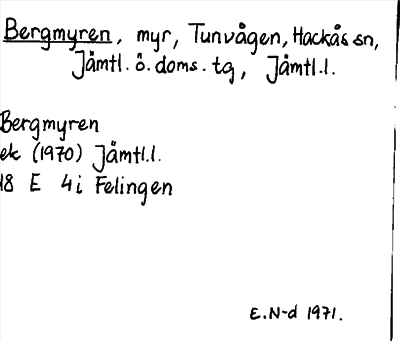 Bergmyren, myr, Tunvågen, Hackås sn,
Jämtl. ö. doms. tg, Jämtl.l.
Bergmyren
ek (1970) Jämtl.l.
18 E 4i Felingen
E.N-d 1971.